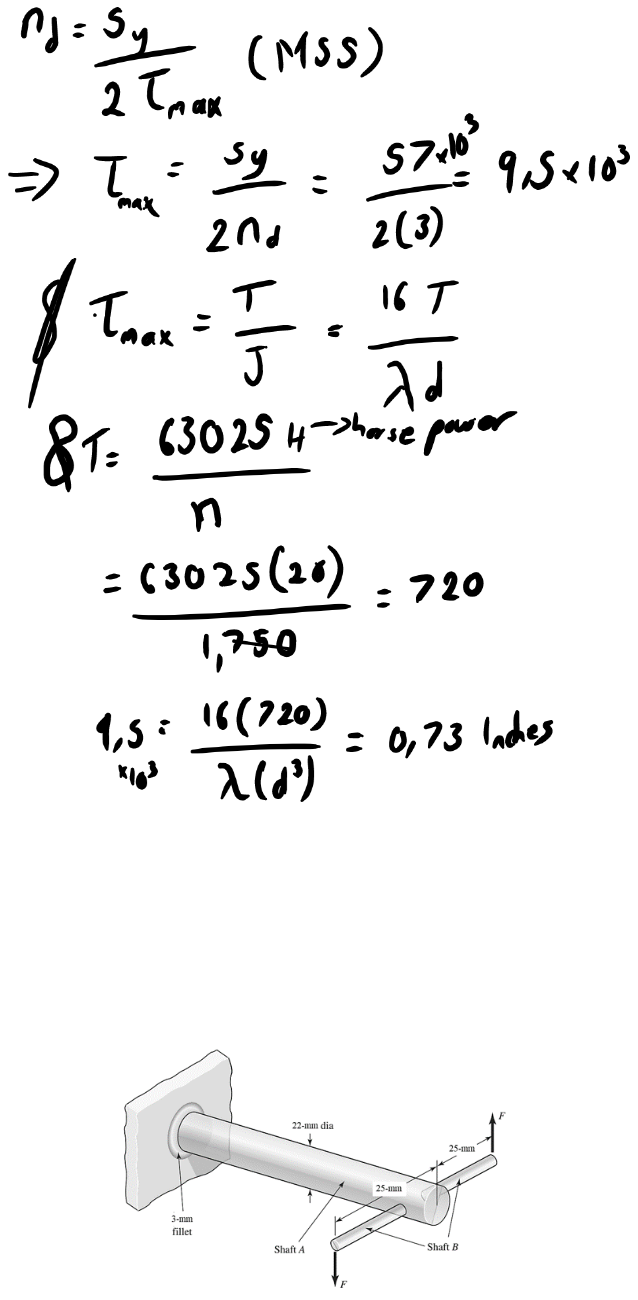 n_d = Sy / 2 τ_max (MSS)
=> τ_max = Sy / 2 n_d = 57×10³ / 2(3) = 9,5×10³
τ_max = T / J = 16 T / λ d
& T = 63025 H → horse power / n
= 63025(20) / 1,750 = 720
9,5 ×10³ = 16(720) / λ(d³) = 0,73 Inches
F
25-mm
22-mm dia
25-mm
3-mm
fillet
Shaft A
Shaft B
F